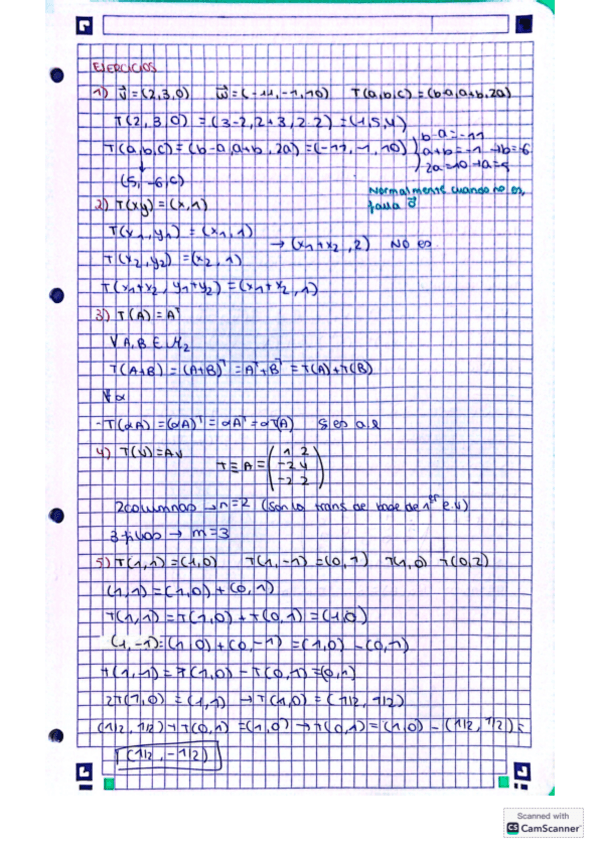 EJERCICIOS
1) v⃗ = (2,3,0) w⃗ = (-11,-1,10) T(a,b,c) = (b-a,a+b,2a)
T(2,3,0) = (3-2,2+3,2·2) = (1,5,4)
T(a,b,c) = (b-a,a+b,2a) = (-11,-1,10) b-a=-11
a+b=-1 → b=-6
2a=10 → a=5
(5,-6,c)
Normalmente cuando no es,
falla 0⃗
2) T(xy) = (x,1)
T(x1,y1) = (x1,1)
→ (x1+x2,2) NO es
T(x2,y2) = (x2,1)
T(x1+x2, y1+y2) = (x1+x2,1)
3) T(A) = Aᵀ
∀ A,B ∈ M2
T(A+B) = (A+B)ᵀ = Aᵀ+Bᵀ = T(A)+T(B)
∀ α
-T(αA) = (αA)ᵀ = αAᵀ = αT(A) Si es a.l
4) T(v) = Av
T ≡ A = ( 1 2
-2 4
-2 2 )
2 columnas → n=2 (son la trans de base de 1er e.v)
3 filas → m=3
5) T(1,1) = (1,0) T(1,-1) = (0,1) T(1,0) T(0,2)
(1,1) = (1,0) + (0,1)
T(1,1) = T(1,0) + T(0,1) = (1,0)
(1,-1) = (1,0) + (0,-1) = (1,0) - (0,1)
T(1,1) = T(1,0) - T(0,1) = (0,1)
2T(1,0) = (1,1) → T(1,0) = (1/2, 1/2)
(1/2, 1/2) + T(0,1) = (1,0) → T(0,1) = (1,0) - (1/2, 1/2) =
(1/2, -1/2)
Scanned with
CS CamScanner